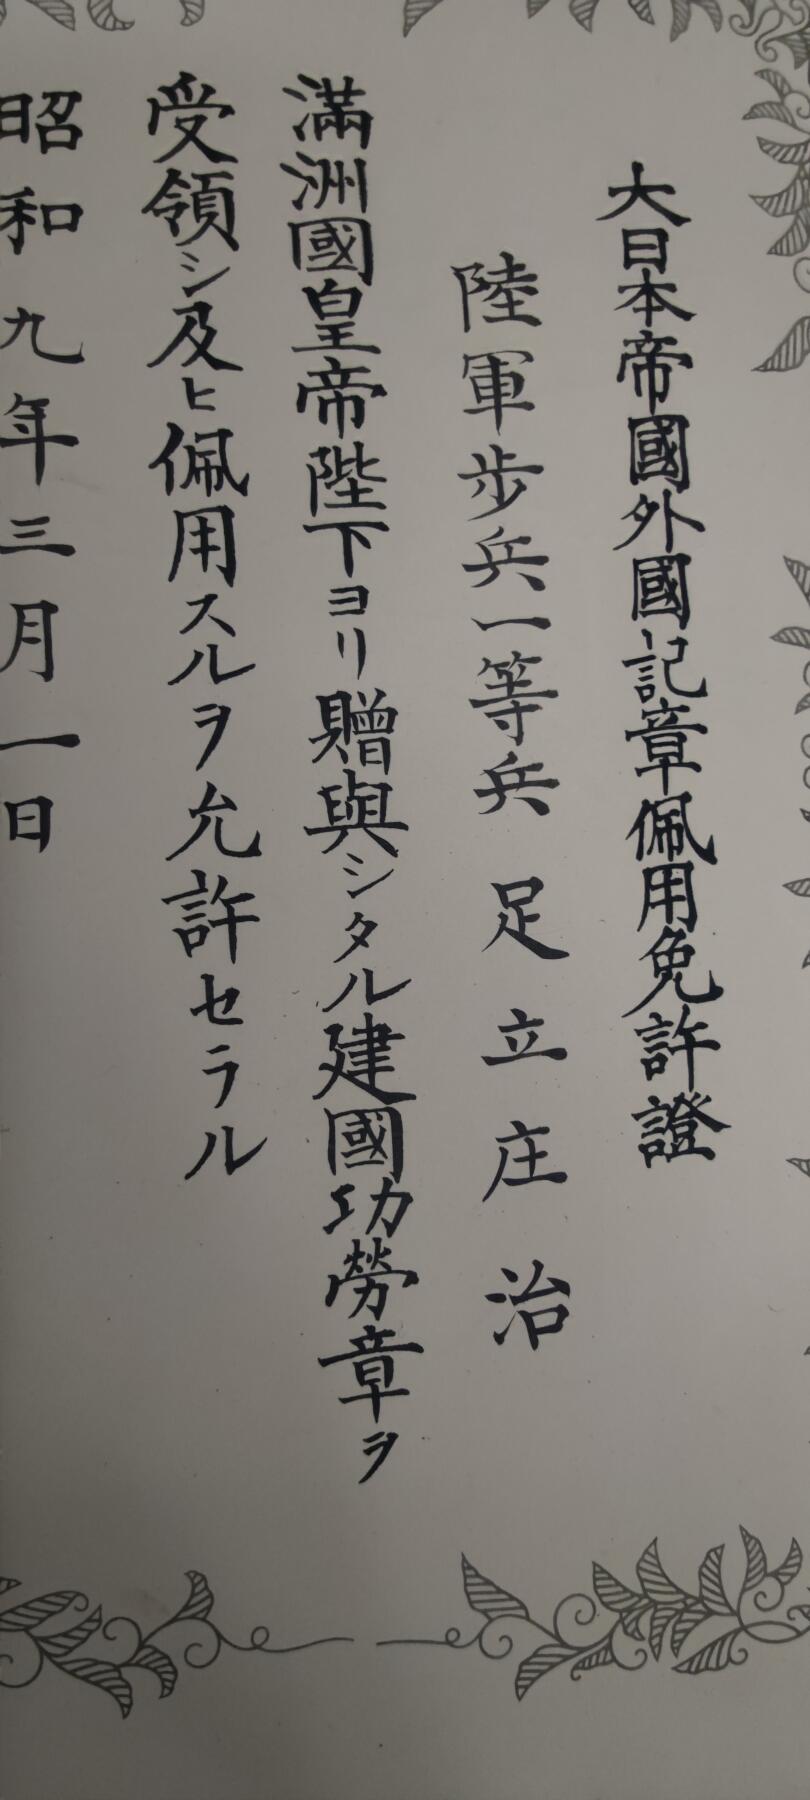 大日本帝國外國記章佩用免許證
陸軍歩兵一等兵 足立庄治
滿洲國皇帝陛下ヨリ贈與シタル建國功勞章ヲ
受領シ及ヒ佩用スルヲ允許セラル
昭和九年三月一日